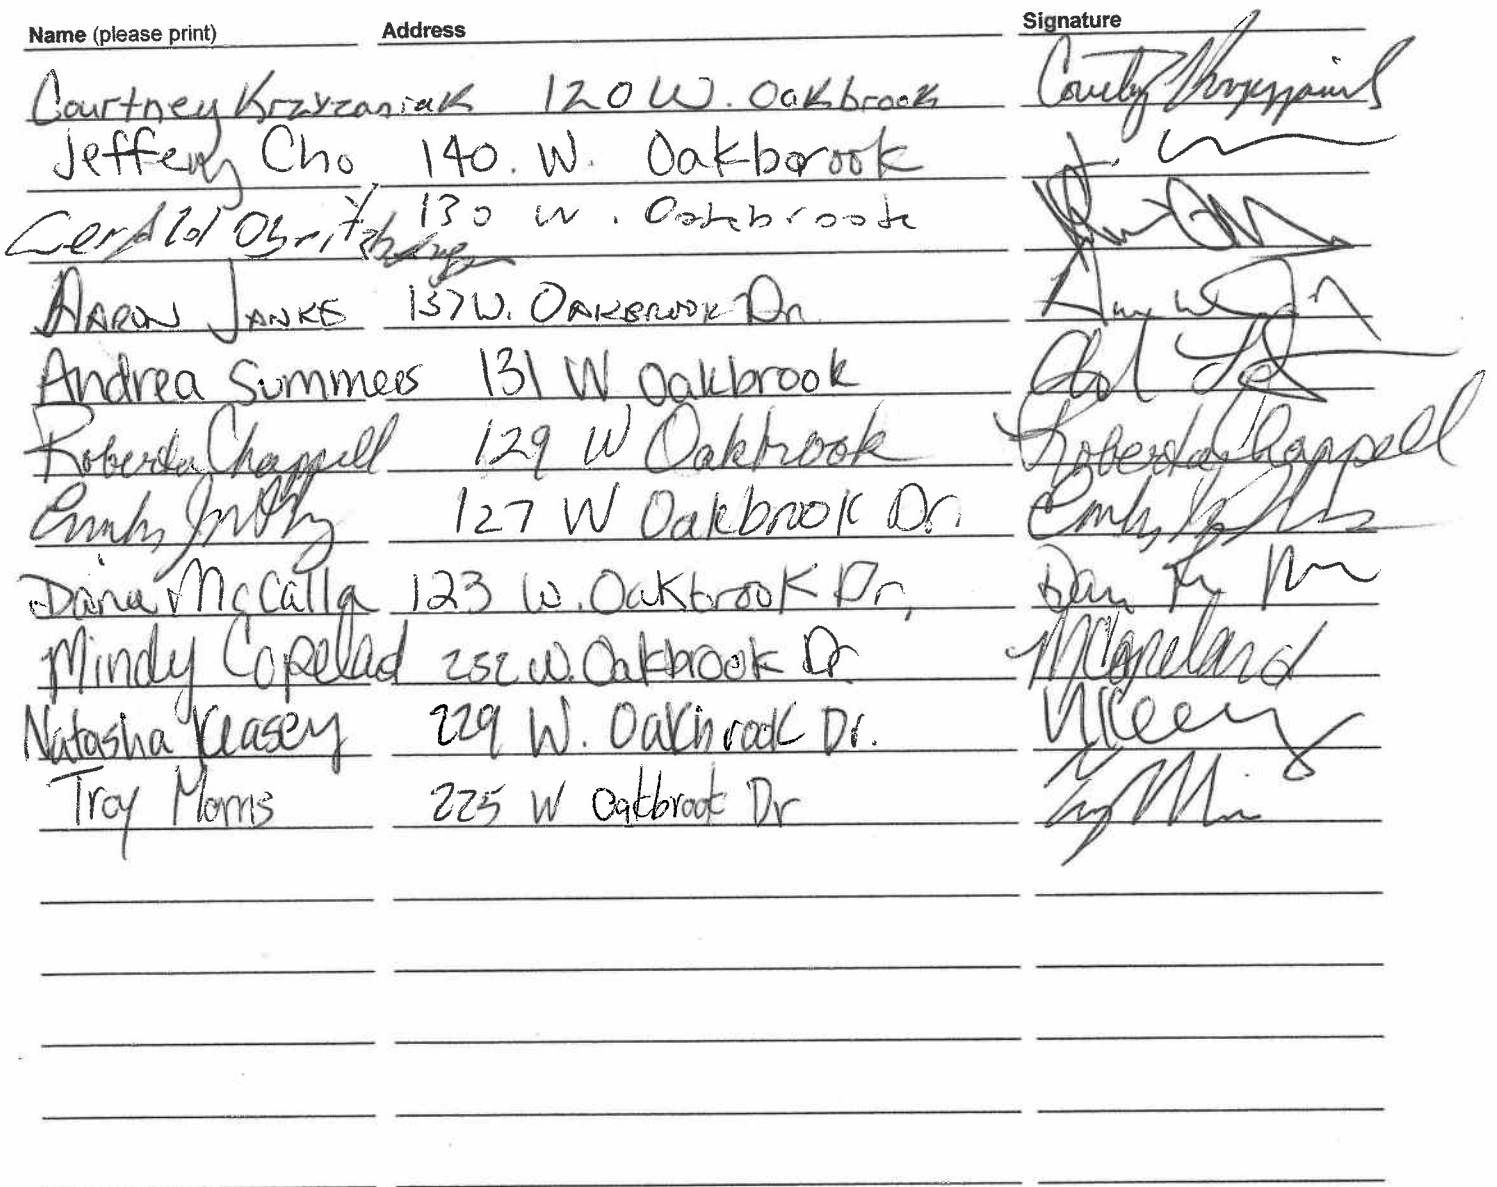 Name (please print) Address Signature
Courtney Krzyzaniak 120 W. Oakbrook
Jeffery Cho 140. W. Oakborook
Gerald 130 W. Oakbrook
AARON JANKE 137 W. OAKBROOK Dr.
Andrea Summers 131 W Oakbrook
Roberta Chappell 129 W Oakbrook Roberta Chappell
Emily 127 W Oakbrook Dr. Emily
Dana McCalla 123 W. Oakbrook Dr.
Mindy Copelad 252 W. Oakbrook Dr MCopeland
Natasha Keasey 229 W. Oakbrook Dr.
Troy Morris 225 W Oakbrook Dr